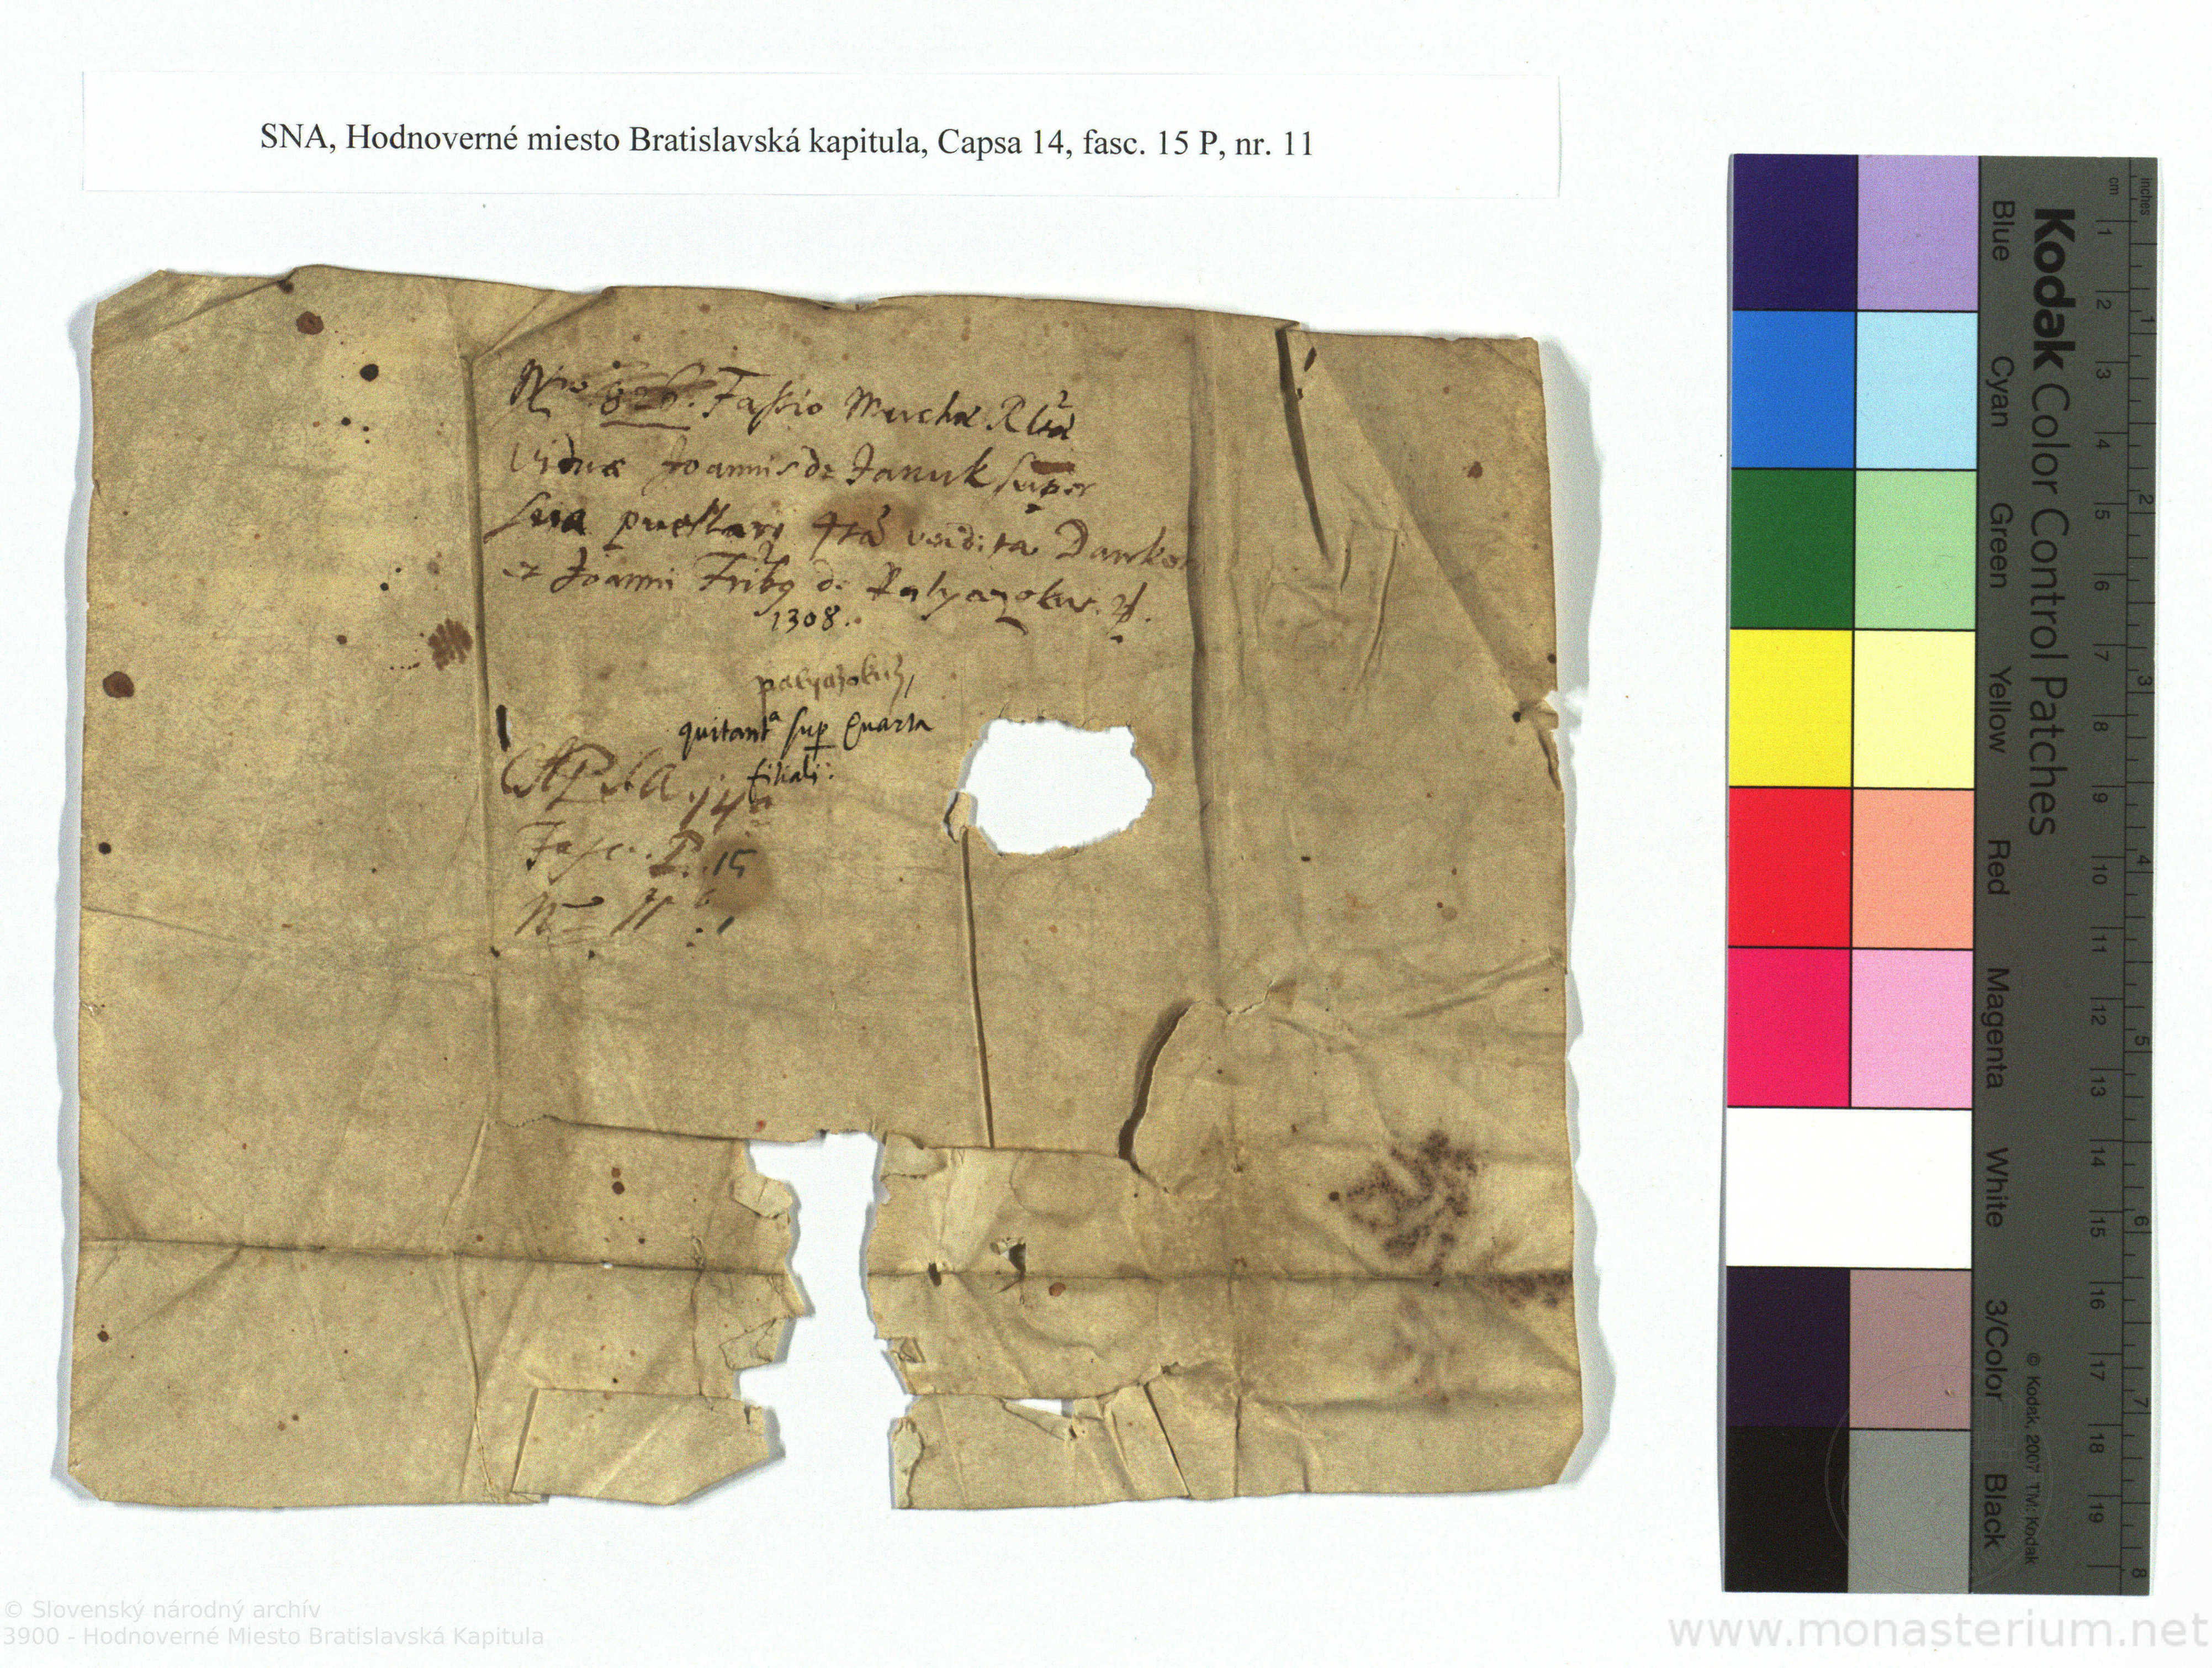 SNA, Hodnoverné miesto Bratislavská kapitula, Capsa 14, fasc. 15 P, nr. 11
Nro 826. Fassio Muchæ
Viduæ Joannis de Januk super
et Joanni de Palyazokw
1308.
palyazokuz,
quitantª sup Quarta
filiali:
CAPSA. 14ª
Fasc. P. 15
N 11
Kodak Color Control Patches
Blue
Cyan
Green
Yellow
Red
Magenta
White
3/Color
Black
© Kodak, 2007 TM: Kodak
cm
1 2 3 4 5 6 7 8 9 10 11 12 13 14 15 16 17 18 19
inches
1 2 3 4 5 6 7 8
© Slovenský národný archív
3900 - Hodnoverné Miesto Bratislavská Kapitula
www.monasterium.net